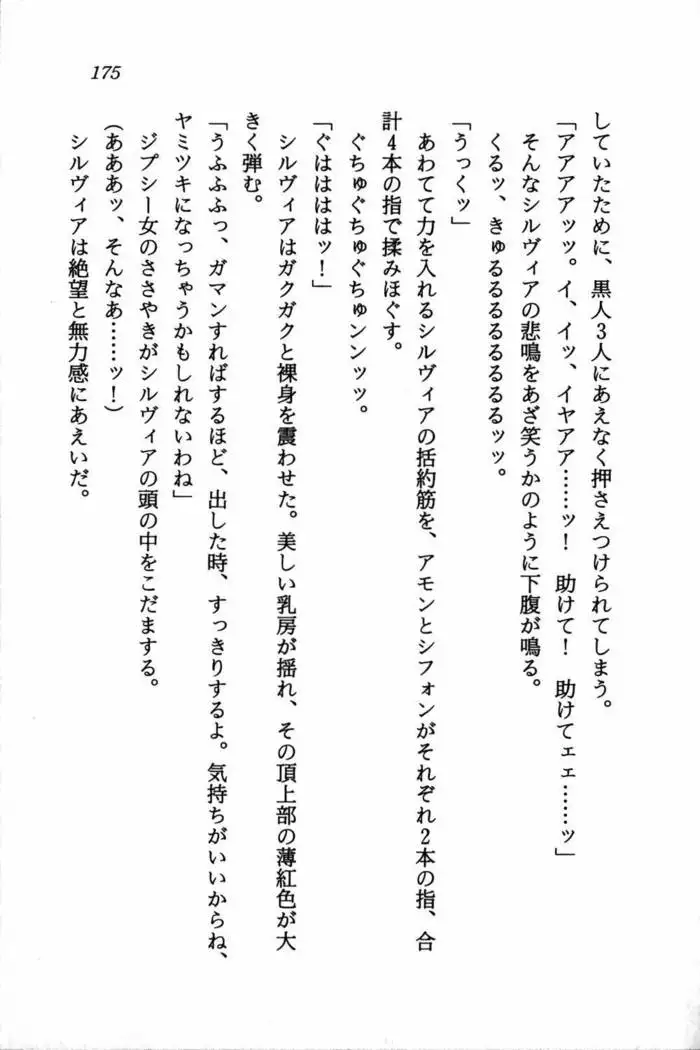 175
していたために、黒人3人にあえなく押さえつけられてしまう。
「アアアアッッ。イ、イッ、イヤアア……ッ！　助けて！　助けてェェ……ッ」
そんなシルヴィアの悲鳴をあざ笑うかのように下腹が鳴る。
くるッ、きゅるるるるるるるッッ。
「うっくッ」
あわてて力を入れるシルヴィアの括約筋を、アモンとシフォンがそれぞれ2本の指、合
計4本の指で揉みほぐす。
ぐちゅぐちゅぐちゅンンッッ。
「ぐははははッ！」
シルヴィアはガクガクと裸身を震わせた。美しい乳房が揺れ、その頂上部の薄紅色が大
きく弾む。
「うふふふっ、ガマンすればするほど、出した時、すっきりするよ。気持ちがいいからね、
ヤミツキになっちゃうかもしれないわね」
ジプシー女のささやきがシルヴィアの頭の中をこだまする。
（あああッ、そんなあ……ッ！）
シルヴィアは絶望と無力感にあえいだ。